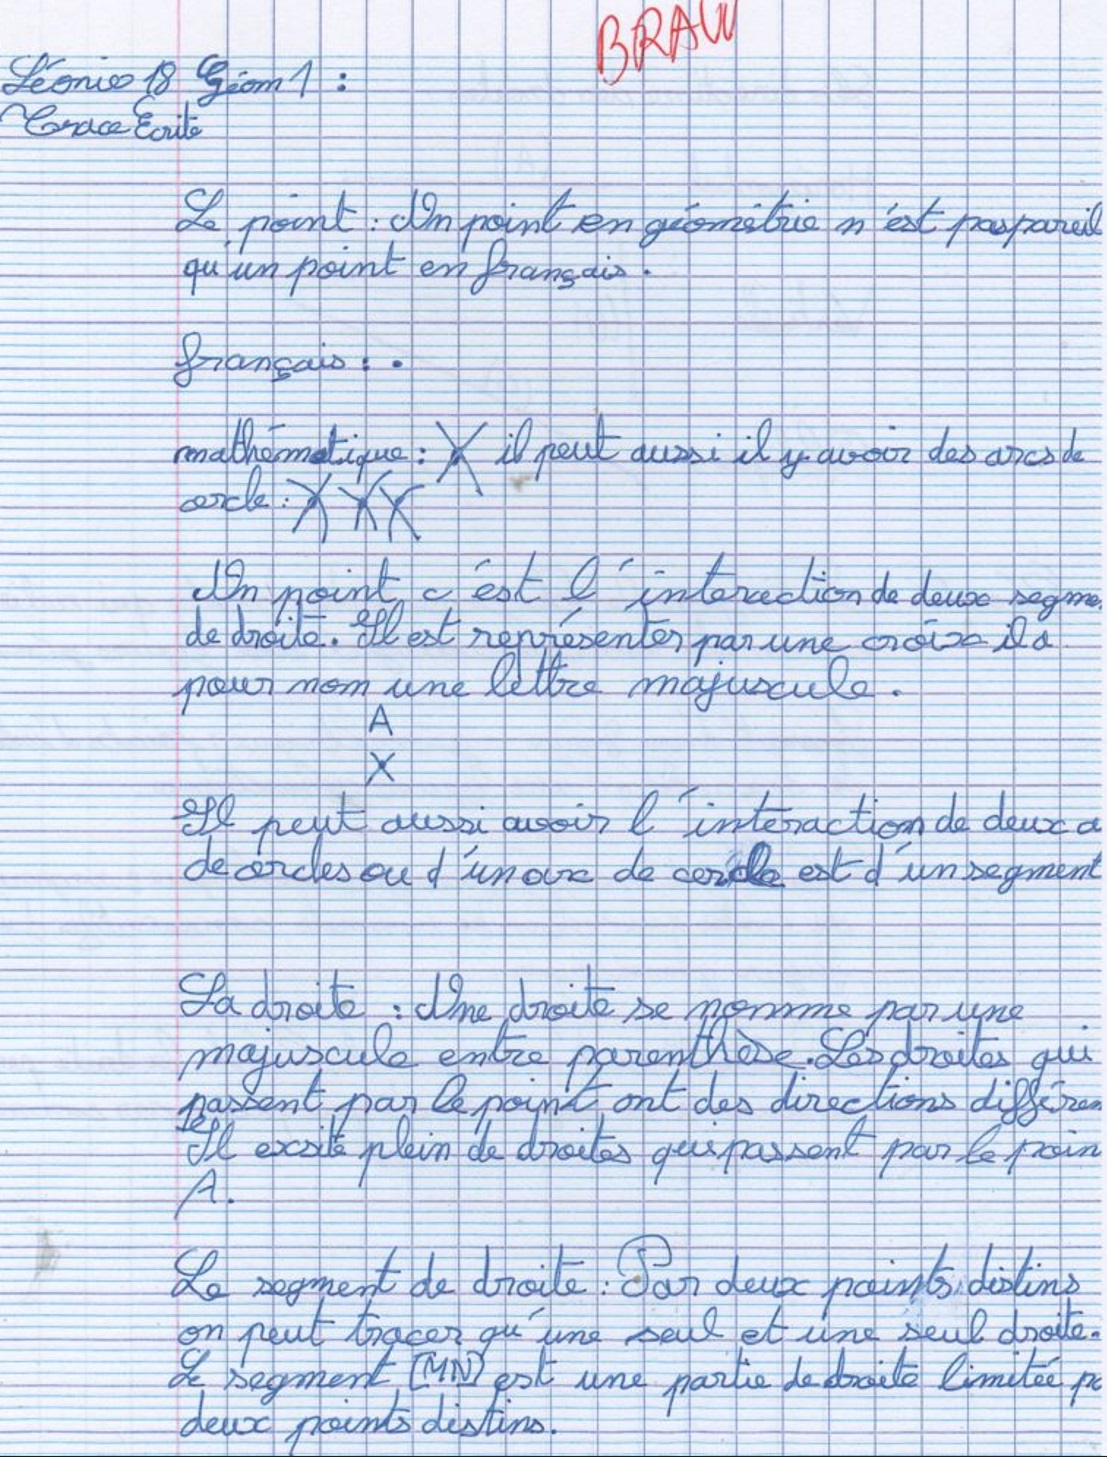 BRAV
Léonie 18 Géom 1 :
Trace Ecrite
Le point : Un point en géométrie n'est pas pareil
qu'un point en français.
français : .
mathématique : il peut aussi il y avoir des arcs de
cercle :
Un point c'est l'interaction de deux segme
de droite. Il est représenter par une croix il a
pour nom une lettre majuscule.
A
Il peut aussi avoir l'interaction de deux a
de cercles ou d'un arc de cercle est d'un segment
La droite : Une droite se nomme par une
majuscule entre parenthèse. Les droites qui
passent par le point ont des directions différen
Il exsite plein de droites qui passent par le poin
A.
Le segment de droite : Par deux points distins
on peut tracer qu'une seul et une seul droite.
Le segment [MN] est une partie de droite limitée pa
deux points distins.